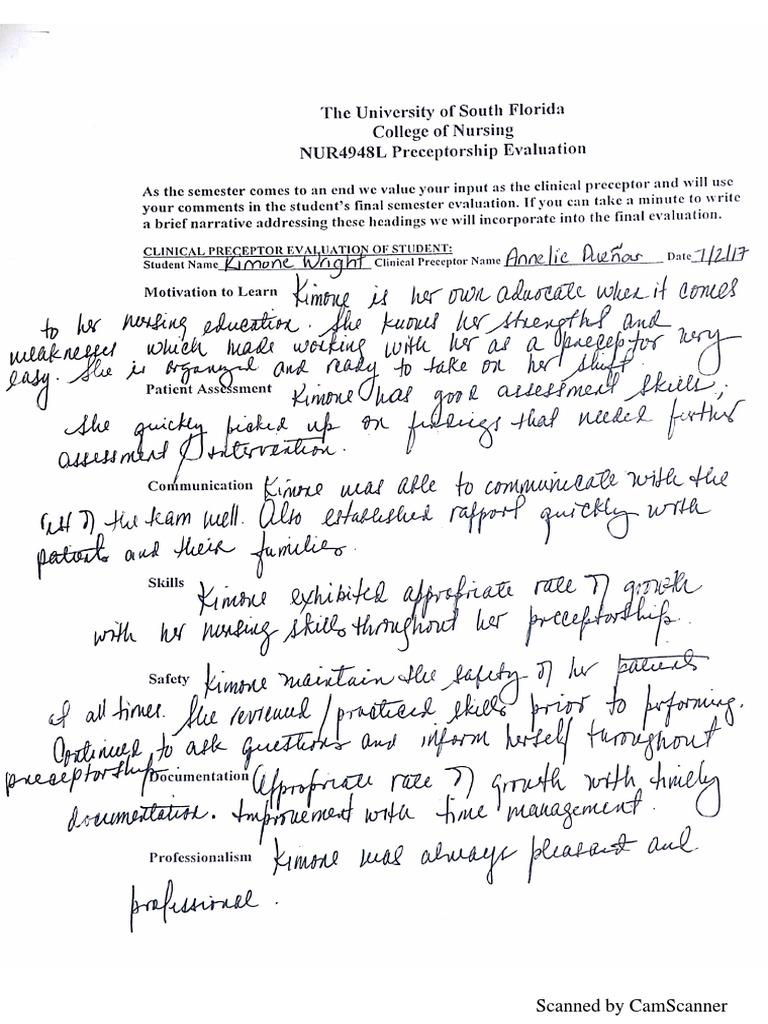 The University of South Florida
College of Nursing
NUR4948L Preceptorship Evaluation
As the semester comes to an end we value your input as the clinical preceptor and will use
your comments in the student's final semester evaluation. If you can take a minute to write
a brief narrative addressing these headings we will incorporate into the final evaluation.
CLINICAL PRECEPTOR EVALUATION OF STUDENT:
Student Name Kimone Wright Clinical Preceptor Name Annelie Dueñas Date 7/2/17
Motivation to Learn Kimone is her own advocate when it comes
to her nursing education. She knows her strengths and
weaknesses which made working with her as a preceptor very
easy. She is organized and ready to take on her shift.
Patient Assessment Kimone has good assessment skills;
she quickly picked up on findings that needed further
assessment / intervention.
Communication Kimone was able to communicate with the
rest of the team well. Also established rapport quickly with
patients and their families.
Skills Kimone exhibited appropriate rate of growth
with her nursing skills throughout her preceptorship.
Safety Kimone maintain the safety of her patients
at all times. She reviewed / practiced skills prior to performing.
Continued to ask questions and inform herself throughout
preceptorship.
Documentation Appropriate rate of growth with timely
documentation. Improvement with time management.
Professionalism Kimone was always pleasant and
professional.
Scanned by CamScanner